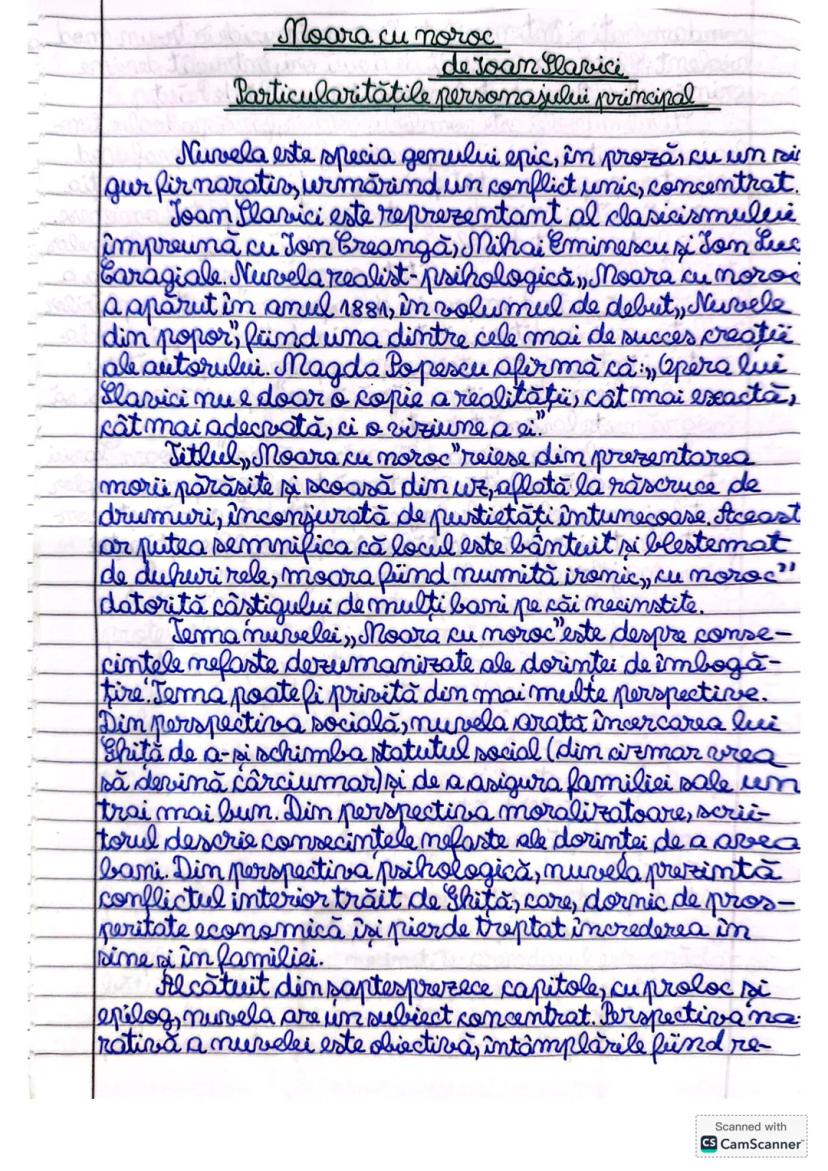 Moara cu noroc
de Ioan Slavici
Particularitățile personajului principal
Nuvela este specia genului epic, în proză, cu un sin
gur fir narativ, urmărind un conflict unic, concentrat.
Ioan Slavici este reprezentant al clasicismului
împreună cu Ion Creangă, Mihai Eminescu și Ion Luc
Caragiale. Nuvela realist-psihologică „Moara cu noroc
a apărut în anul 1881, în volumul de debut „Nuvele
din popor", fiind una dintre cele mai de succes creații
ale autorului. Magda Popescu afirmă că: „Opera lui
Slavici nu e doar o copie a realității, cât mai exactă,
cât mai adecvată, ci o viziune a ei."
Titlul „Moara cu noroc" reiese din prezentarea
morii părăsite și scoasă din uz, aflată la răscruce de
drumuri, înconjurată de pustietăți întunecoase. Aceast
ar putea semnifica că locul este bântuit și blestemat
de duhuri rele, moara fiind numită ironic „cu noroc"
datorită câștigului de mulți bani pe căi necinstite.
Tema nuvelei „Moara cu noroc" este despre conse-
cințele nefaste dezumanizate ale dorinței de îmbogă-
țire. Tema poate fi privită din mai multe perspective.
Din perspectiva socială, nuvela arată încercarea lui
Ghiță de a-și schimba statutul social (din cizmar vrea
să devină cârciumar) și de a asigura familiei sale un
trai mai bun. Din perspectiva moralizatoare, scrii-
torul descrie consecințele nefaste ale dorinței de a avea
bani. Din perspectiva psihologică, nuvela prezintă
conflictul interior trăit de Ghiță, care, dornic de pros-
peritate economică, își pierde treptat încrederea în
sine și în familiei.
Alcătuit din șaptesprezece capitole, cu proloc și
epilog, nuvela are un subiect concentrat. Perspectiva na-
rativă a nuvelei este obiectivă, întâmplările fiind re-
Scanned with
CS CamScanner